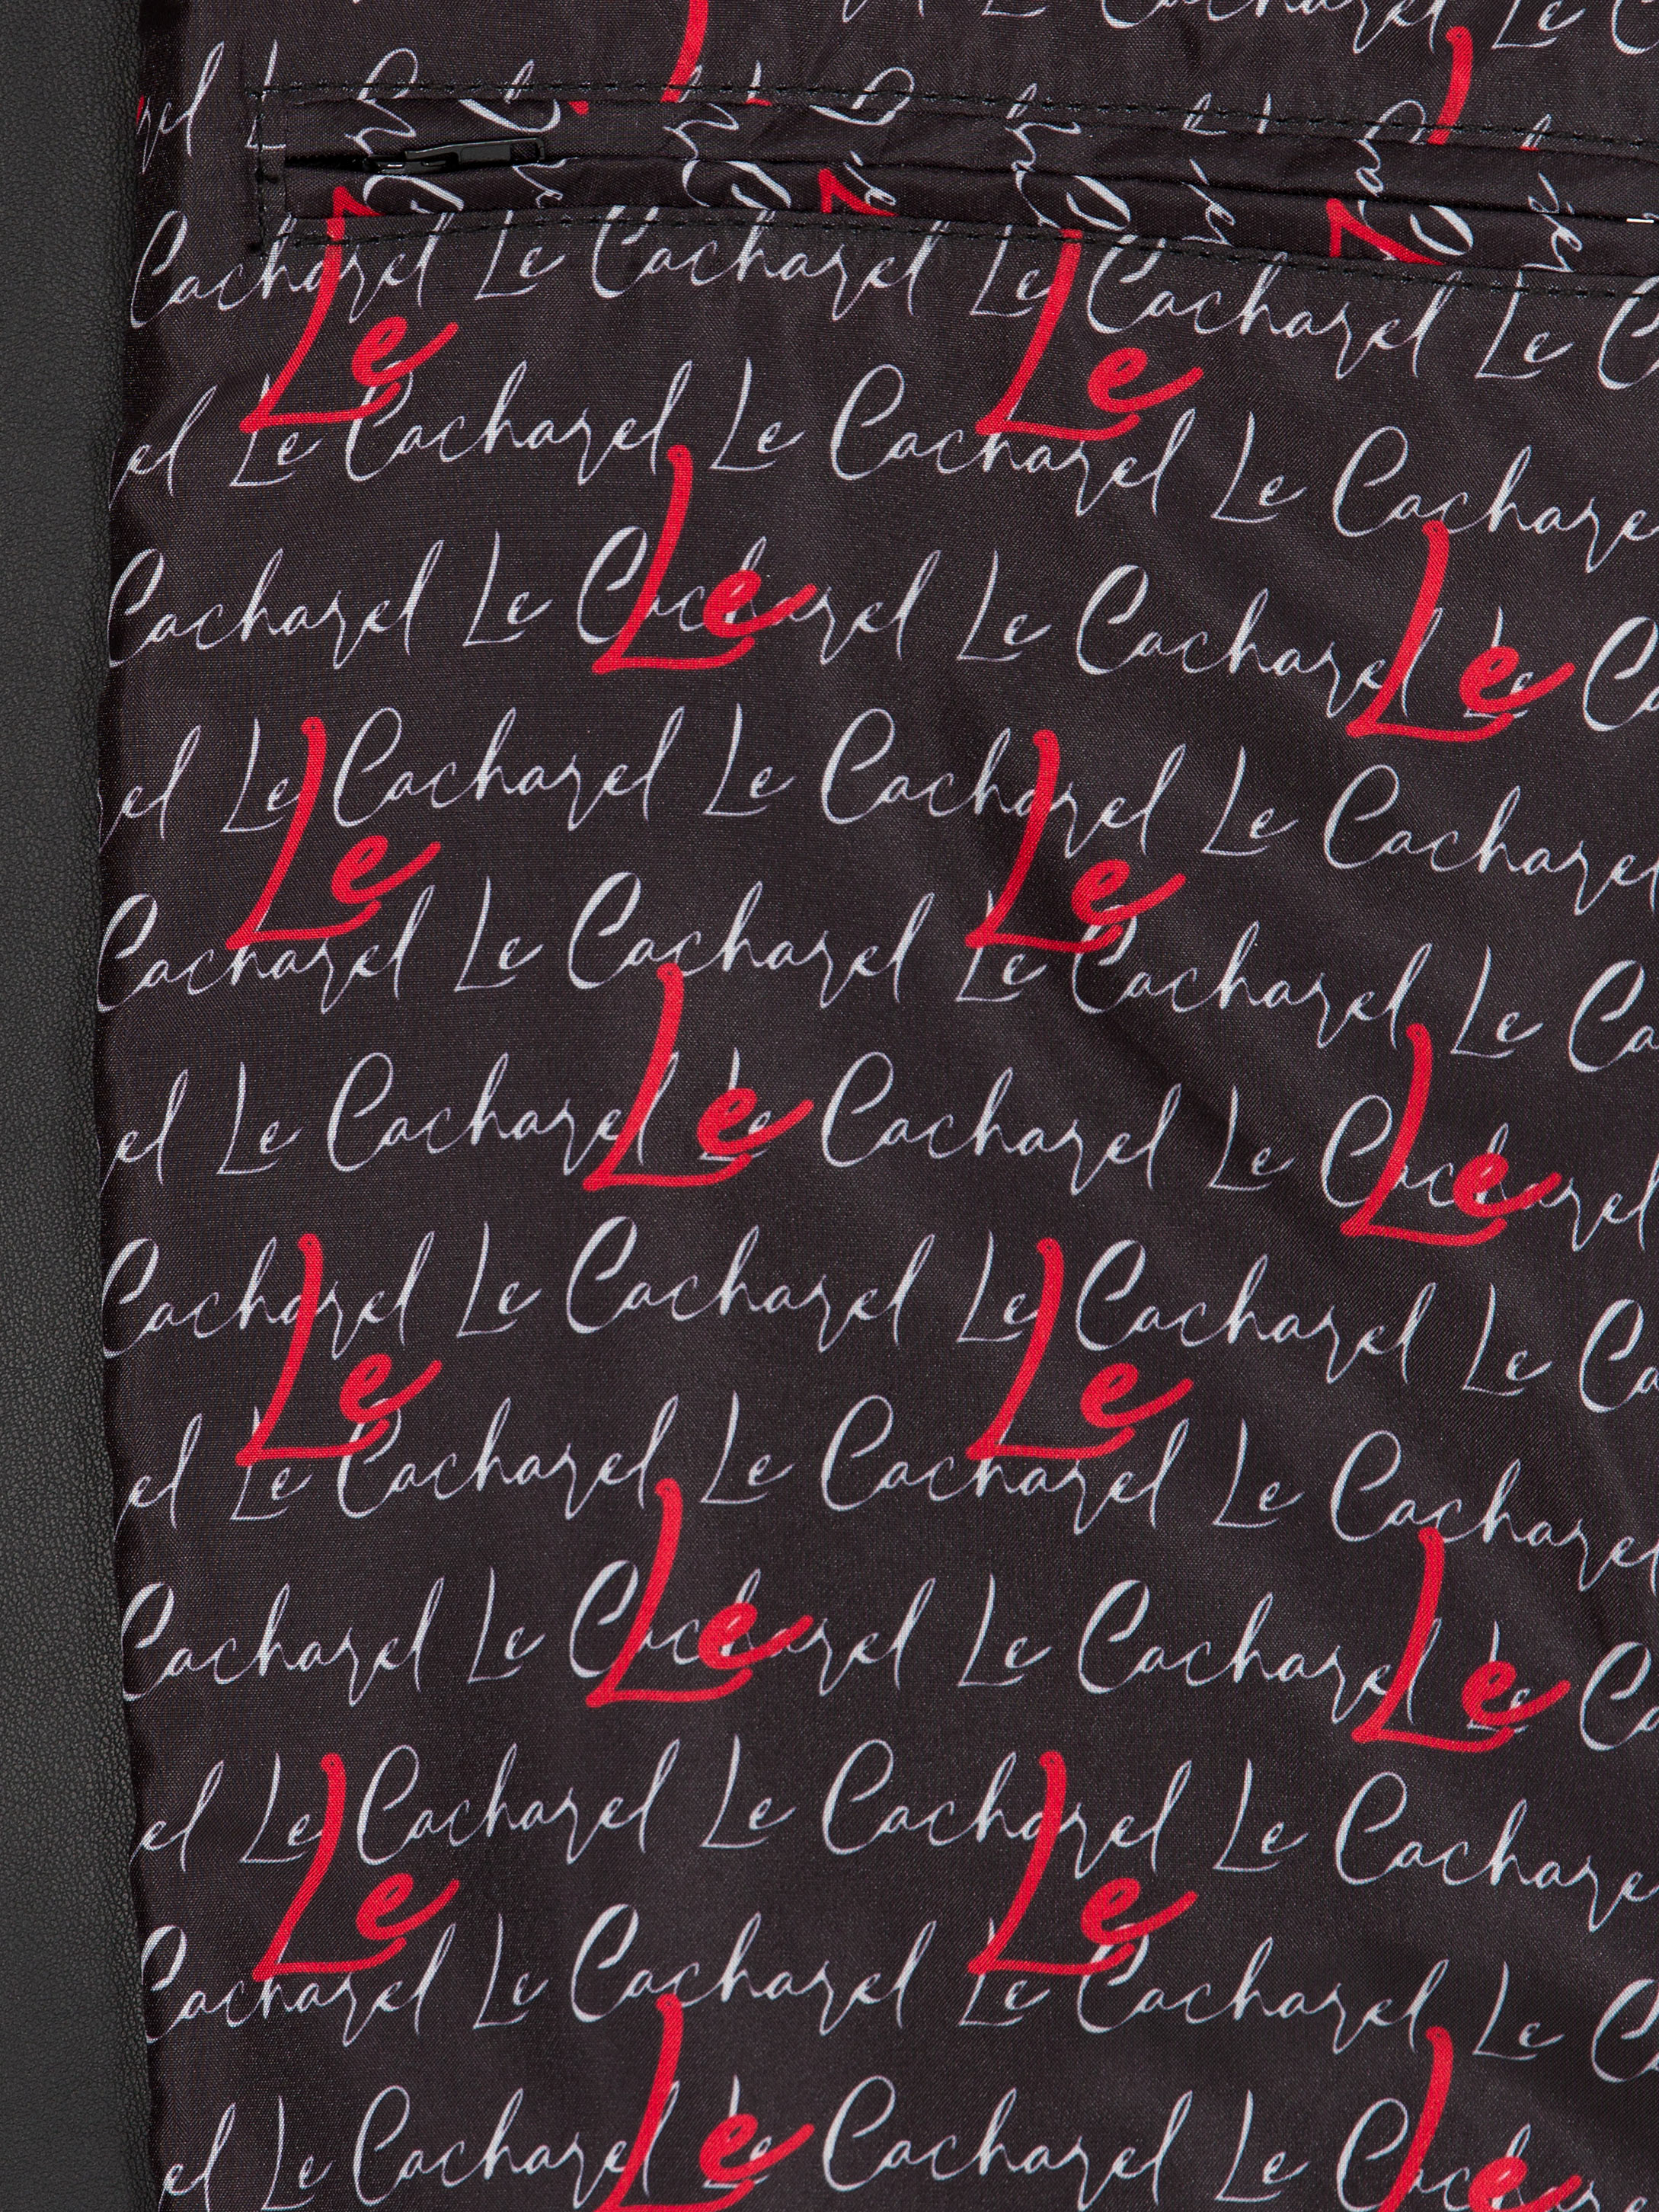 Le Cacharel Le
Cacharel Le Cacharel Le Cacharel Le
Le Le
el Le Cacharel Le Cacharel Le Cachare
Cacharel Le Cacharel Le Cacharel Le
Le Le
el Le Cacharel Le Cacharel Le Cacharel
Le Le
Cacharel Le Cacharel Le Cacharel Le Ca
el Le Cacharel Le Cacharel Le Cacharel
Le Le
Cacharel Le Cacharel Le Cacharel Le Ca
Le Le
el Le Cacharel Le Cacharel Le Cachare
Cacharel Le Cacharel Le Cacharel Le Ca
Le Le
el Le Cacharel Le Cacharel Le Cachare
Le Le
Cacharel Le Cacharel Le Cacharel Le
el Le Cacharel Le Cacharel Le Cacharel
Le Le